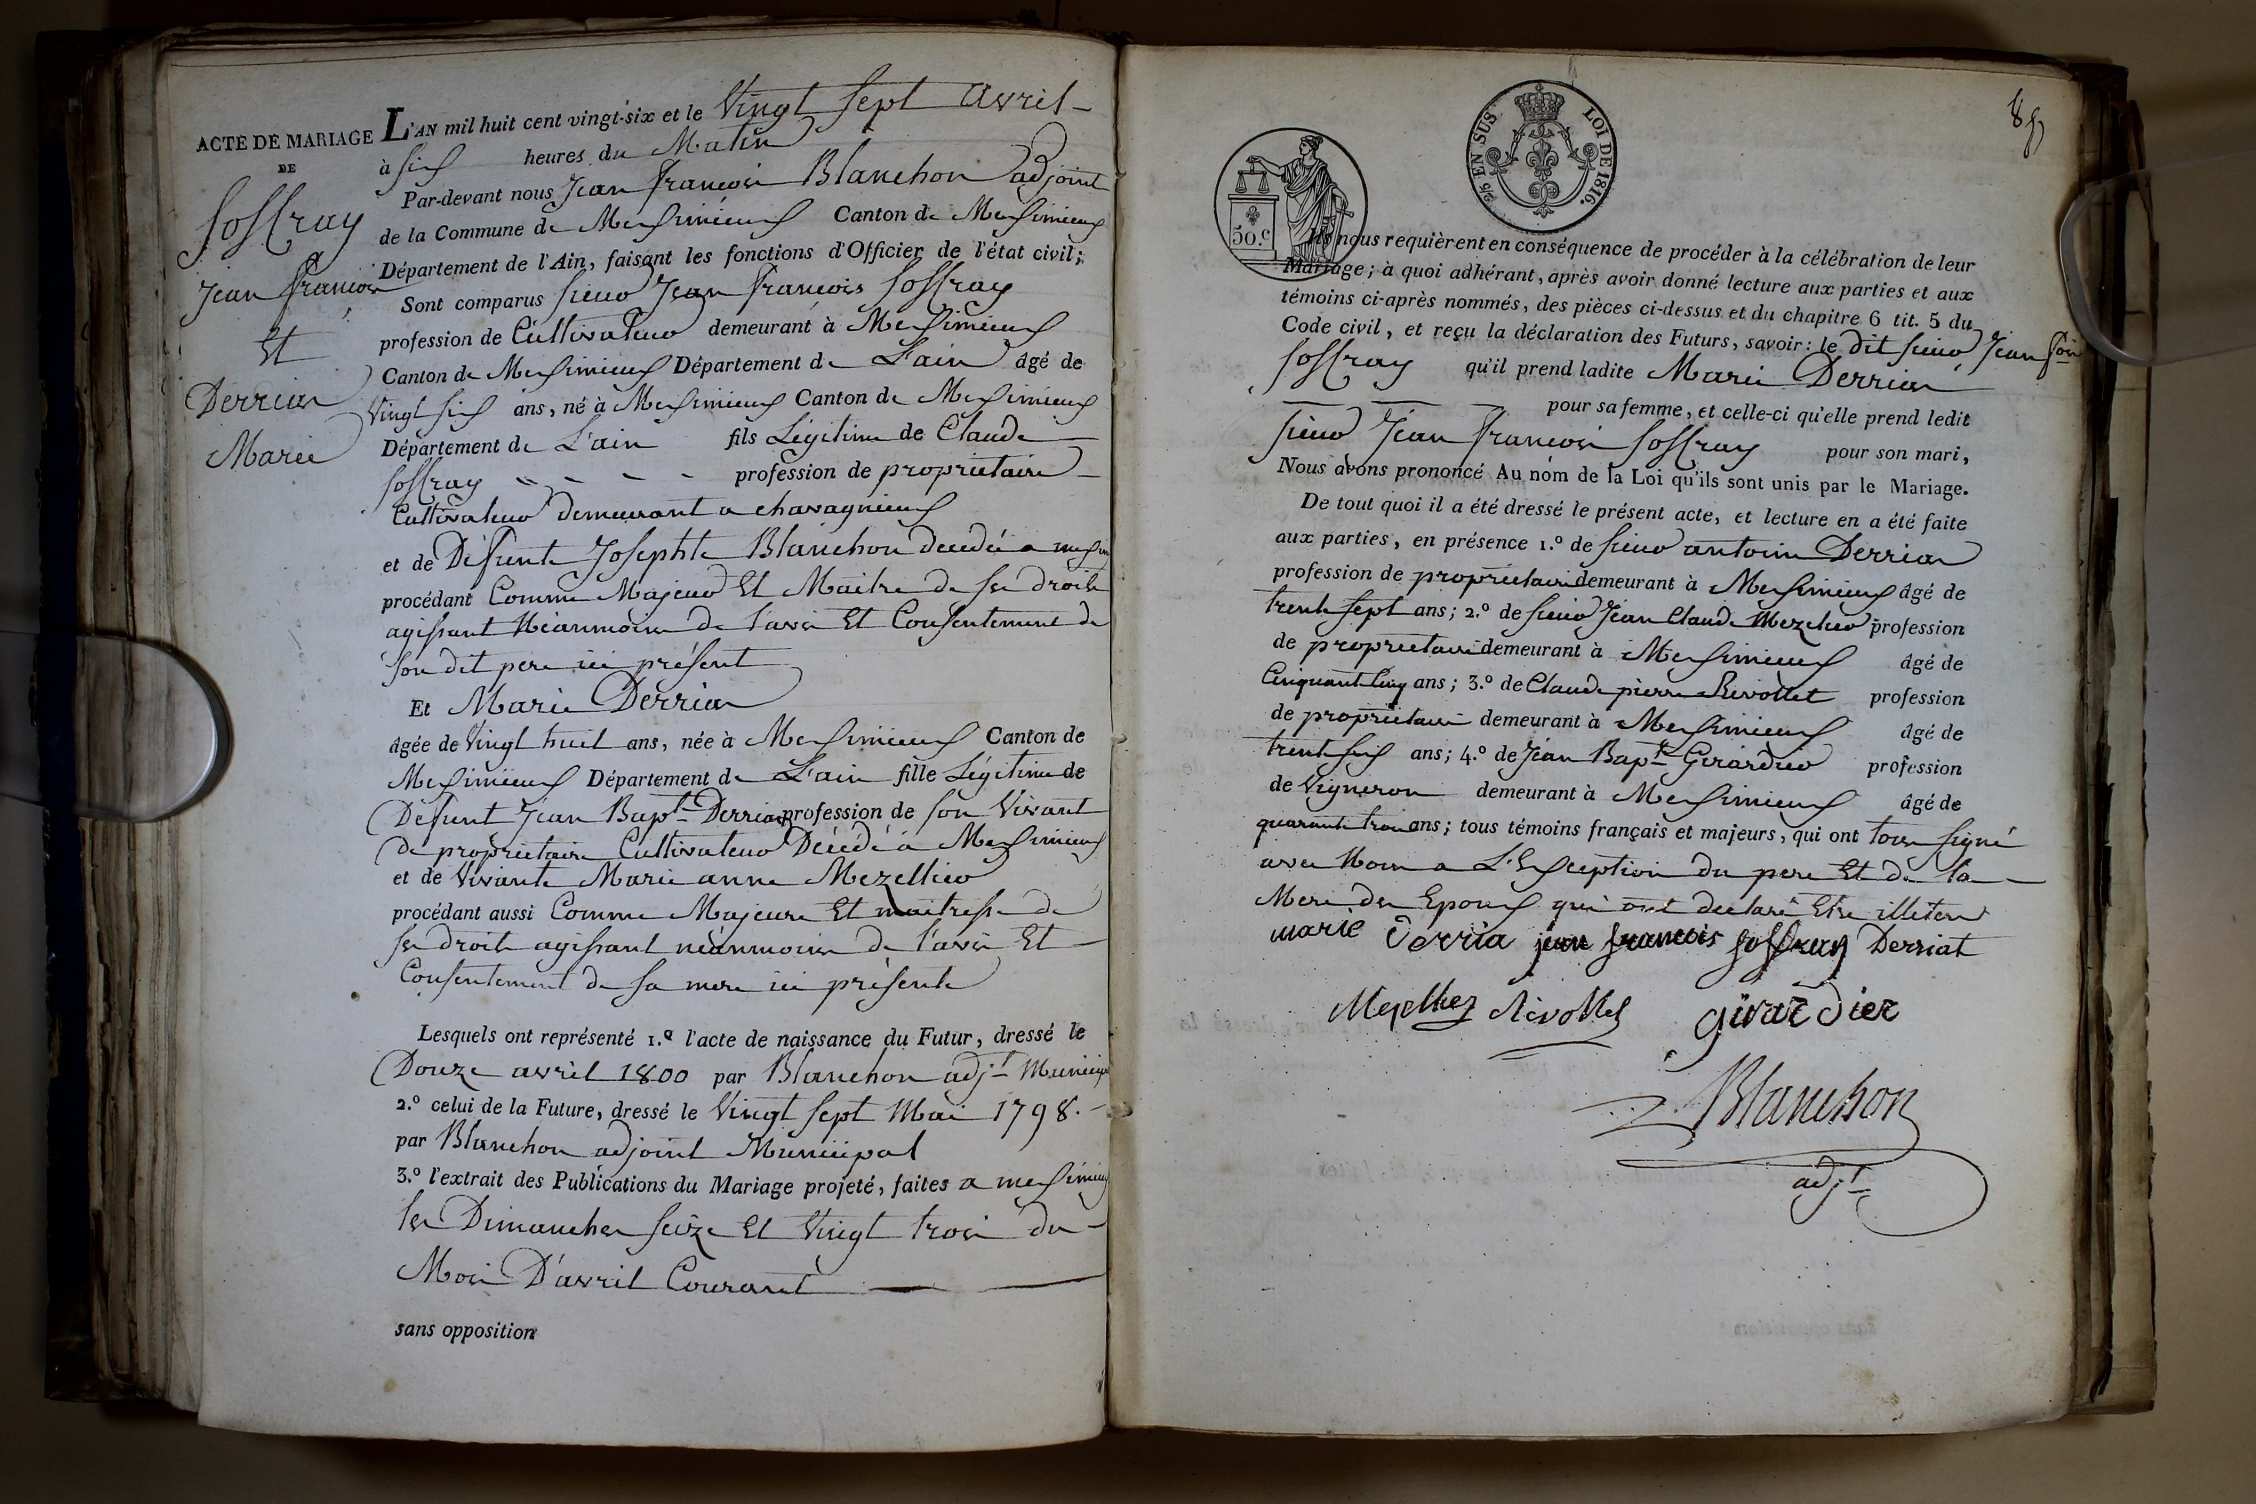 ACTE DE MARIAGE
DE
Joffray
Jean François
Et
Derriar
Marie
L'AN mil huit cent vingt-six et le Vingt Sept Avril
à six heures du Matin
Par-devant nous Jean françois Blanchon adjoint
de la Commune de Meximieux Canton de Meximieux
Département de l'Ain, faisant les fonctions d'Officier de l'état civil;
Sont comparus sieur Jean françois Joffray
profession de Cultivateur demeurant à Meximieux
Canton de Meximieux Département de L'ain âgé de
Vingt six ans, né à Meximieux Canton de Meximieux
Département de L'ain fils Légitime de Claude
Joffray profession de propriétaire
Cultivateur demeurant a chavagnieux
et de Défunte Josephte Blanchon decedée a mexim
procédant Comme Majeur Et Maitre de ses droits
agissant Néanmoins de l'avis Et Consentement de
son dit pere ici présent
Et Marie Derriar
âgée de Vingt huit ans, née à Meximieux Canton de
Meximieux Département de L'ain fille Légitime de
Defunt Jean Bapt Derriar profession de son Vivant
de propriétaire Cultivateur Décédé à Meximieux
et de Vivante Marie anne Mezellier
procédant aussi Comme Majeure Et maitresse de
ses droits agissant néanmoins de l'avis Et
Consentement de sa mere ici présente
Lesquels ont représenté 1.º l'acte de naissance du Futur, dressé le
Douze avril 1800 par Blanchon adjt Municip
2.º celui de la Future, dressé le Vingt sept Mai 1798.
par Blanchon adjoint Municipal
3.º l'extrait des Publications du Mariage projeté, faites a meximieu
les Dimanches seize Et Vingt trois du
Mois D'avril Courant
sans opposition
50.c
2/5 EN SUS LOI DE 1816.
Ils nous requièrent en conséquence de procéder à la célébration de leur
Mariage; à quoi adhérant, après avoir donné lecture aux parties et aux
témoins ci-après nommés, des pièces ci-dessus et du chapitre 6 tit. 5 du
Code civil, et reçu la déclaration des Futurs, savoir: le dit sieur Jean fois
Joffray qu'il prend ladite Marie Derriar
pour sa femme, et celle-ci qu'elle prend ledit
sieur Jean françois Joffray pour son mari,
Nous avons prononcé Au nom de la Loi qu'ils sont unis par le Mariage.
De tout quoi il a été dressé le présent acte, et lecture en a été faite
aux parties, en présence 1.º de sieur antoine Derriar
profession de propriétaire demeurant à Meximieux âgé de
trente sept ans; 2.º de sieur Jean Claude Mezelier profession
de propriétaire demeurant à Meximieux âgé de
Cinquante Cinq ans; 3.º de Claude pierre Rivollet profession
de propriétaire demeurant à Meximieux âgé de
trente six ans; 4.º de Jean Bapte Girardier profession
de Vigneron demeurant à Meximieux âgé de
quarante trois ans; tous témoins français et majeurs, qui ont tous signé
avec Nous a L'Exception du pere Et de la
Mere des Epoux qui ont declaré Etre illiteres
marie derria jean francois joffray Derriat
Mezellier Rivollet girardier
Blanchon
adjt